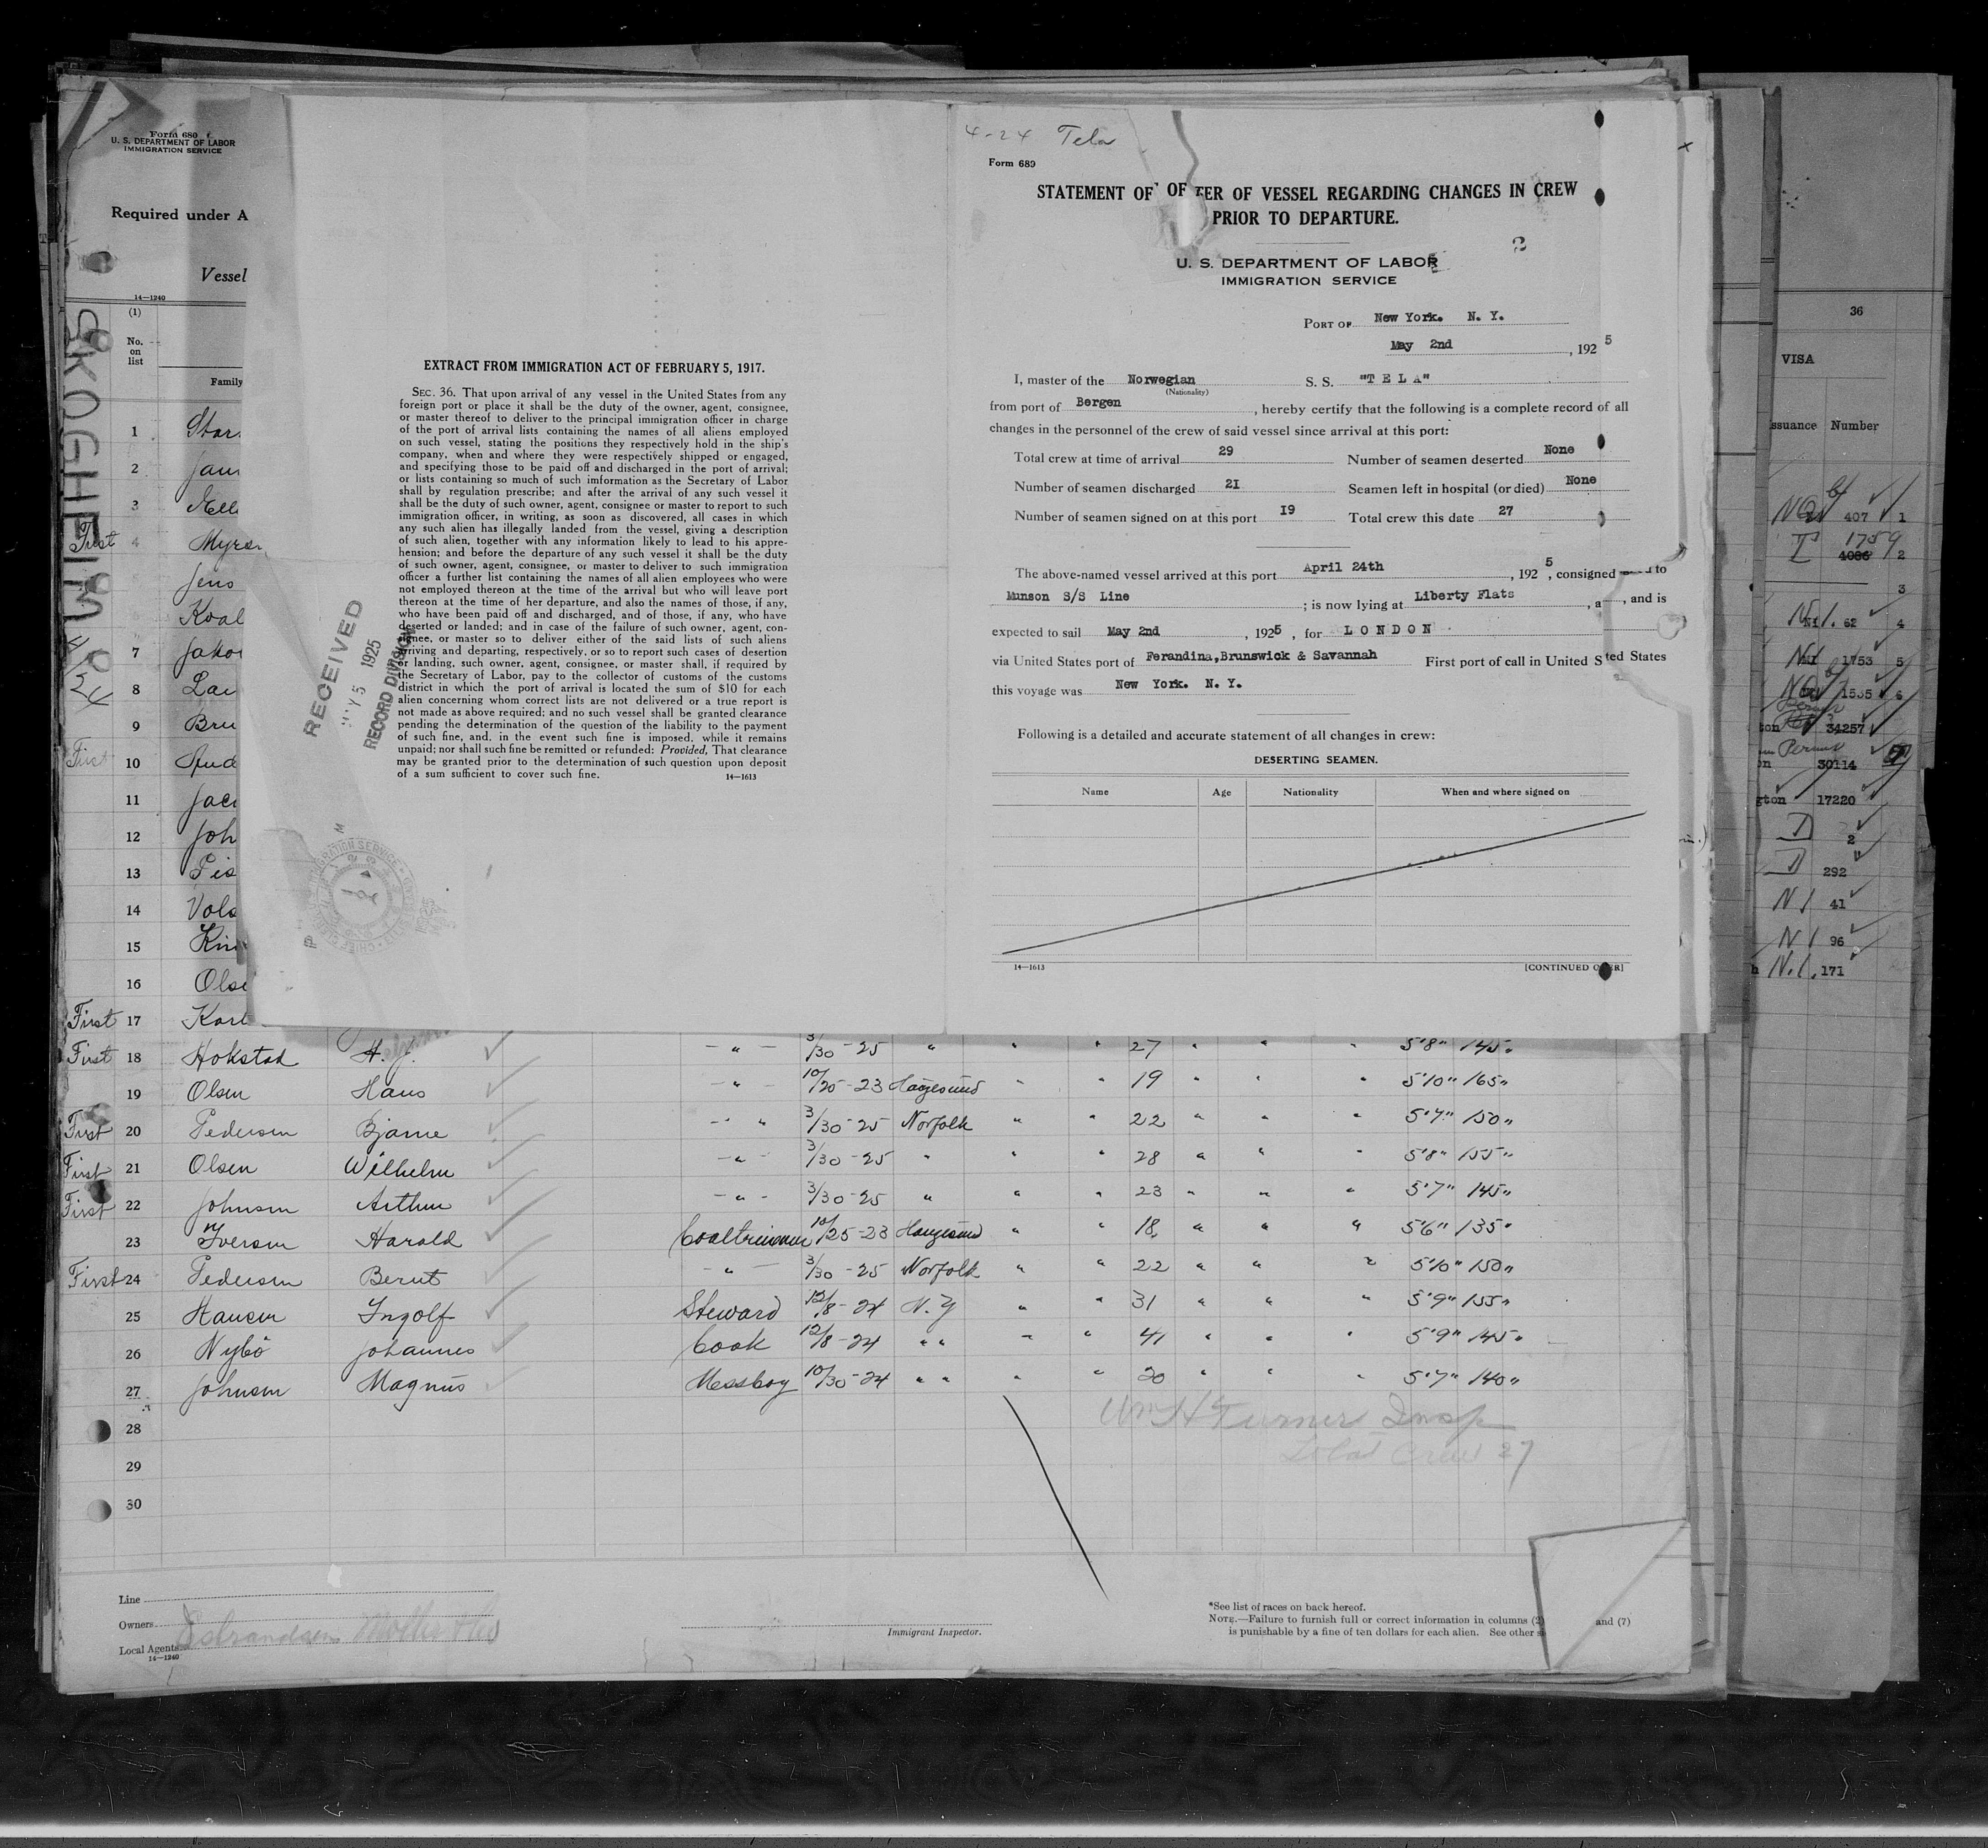 Form 680
U. S. DEPARTMENT OF LABOR
IMMIGRATION SERVICE
Required under A
Vessel
14—1240
SKOGHEIM 4/24
(1)
No.
on
list
Family
1 Star
2
3
First 4 Myrs
5 Jens
6 Kval
7 Jako
8 Lau
9 Bru
First 10
11 Jac
12 Joh
13
14 Vols
15
16 Olse
First 17 Karl
EXTRACT FROM IMMIGRATION ACT OF FEBRUARY 5, 1917.
SEC. 36. That upon arrival of any vessel in the United States from any
foreign port or place it shall be the duty of the owner, agent, consignee,
or master thereof to deliver to the principal immigration officer in charge
of the port of arrival lists containing the names of all aliens employed
on such vessel, stating the positions they respectively hold in the ship's
company, when and where they were respectively shipped or engaged,
and specifying those to be paid off and discharged in the port of arrival;
or lists containing so much of such imformation as the Secretary of Labor
shall by regulation prescribe; and after the arrival of any such vessel it
shall be the duty of such owner, agent, consignee or master to report to such
immigration officer, in writing, as soon as discovered, all cases in which
any such alien has illegally landed from the vessel, giving a description
of such alien, together with any information likely to lead to his appre-
hension; and before the departure of any such vessel it shall be the duty
of such owner, agent, consignee, or master to deliver to such immigration
officer a further list containing the names of all alien employees who were
not employed thereon at the time of the arrival but who will leave port
thereon at the time of her departure, and also the names of those, if any,
who have been paid off and discharged, and of those, if any, who have
deserted or landed; and in case of the failure of such owner, agent, con-
signee, or master so to deliver either of the said lists of such aliens
arriving and departing, respectively, or so to report such cases of desertion
or landing, such owner, agent, consignee, or master shall, if required by
the Secretary of Labor, pay to the collector of customs of the customs
district in which the port of arrival is located the sum of $10 for each
alien concerning whom correct lists are not delivered or a true report is
not made as above required; and no such vessel shall be granted clearance
pending the determination of the question of the liability to the payment
of such fine, and, in the event such fine is imposed, while it remains
unpaid; nor shall such fine be remitted or refunded: Provided, That clearance
may be granted prior to the determination of such question upon deposit
of a sum sufficient to cover such fine. 14—1613
RECEIVED
5 1925
RECORD DIVISION
4-24 Tela
Form 689
STATEMENT OF OF TER OF VESSEL REGARDING CHANGES IN CREW
PRIOR TO DEPARTURE.
2
U. S. DEPARTMENT OF LABOR
IMMIGRATION SERVICE
PORT OF New York. N. Y.
May 2nd, 1925
I, master of the Norwegian S. S. "T E L A"
(Nationality)
from port of Bergen, hereby certify that the following is a complete record of all
changes in the personnel of the crew of said vessel since arrival at this port:
Total crew at time of arrival 29 Number of seamen deserted None
Number of seamen discharged 21 Seamen left in hospital (or died) None
Number of seamen signed on at this port 19 Total crew this date 27
The above-named vessel arrived at this port April 24th, 1925, consigned to
Munson S/S Line; is now lying at Liberty Flats, a, and is
expected to sail May 2nd, 1925, for L O N D O N
via United States port of Ferandina,Brunswick & Savannah First port of call in United S ted States
this voyage was New York. N. Y.
Following is a detailed and accurate statement of all changes in crew:
DESERTING SEAMEN.
Name Age Nationality When and where signed on
14—1613 [CONTINUED
36
VISA
ssuance Number
407 1
1759
4086 2
3
N1. 62 4
1753 5
1535 6
ton 34257
Permit
30114
gton 17220
2
292
N1 41
N1 96
N.1. 171
First 18 Hokstad H. J. – " – 3/30-25 " " " 27 " " " 5'8" 145"
19 Olsen Hans – " – 10/25-23 Haugesund " " 19 " " " 5'10" 165"
First 20 Pedersen Bjarne – " " 3/30-25 Norfolk " " 22 " " " 5'7" 150"
First 21 Olsen Wilhelm – " – 3/30-25 " " " 28 " " " 5'8" 155"
First 22 Johnsen Arthur – " – 3/30-25 " " " 23 " " " 5'7" 145"
23 Iversen Harald Coaltrimmer 10/25-23 Haugesund " " 18 " " " 5'6" 135"
First 24 Pedersen Bernt – " – 3/30-25 Norfolk " " 22 " " " 5'10" 150"
25 Hansen Ingolf Steward 12/8-24 N.Y " " 31 " " " 5'9" 155"
26 Nybö Johannes Cook 12/8-24 " " " " 41 " " " 5'9" 145"
27 Johnsen Magnus Messboy 10/30-24 " " " " 20 " " " 5'7" 140"
28
29
30
Wm H Turner Insp
Total Crew 27
Line
Owners
Local Agents
14—1240
Immigrant Inspector.
*See list of races on back hereof.
NOTE.—Failure to furnish full or correct information in columns (2) and (7)
is punishable by a fine of ten dollars for each alien. See other